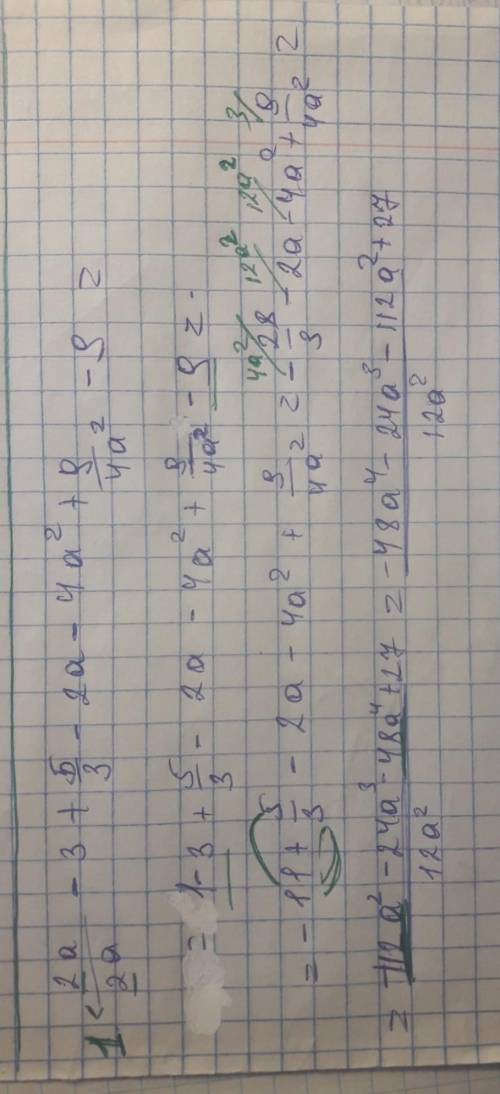 1 2a/2a - 3 + 5/3 - 2a - 4a² + 9/4a² - 9 =
= 1 - 3 + 5/3 - 2a - 4a² + 9/4a² - 9 =
= - 11 + 5/3 - 2a - 4a² + 9/4a² = - 28/3 - 2a - 4a² + 9/4a² =
4a² 12a² 12a² 3
= -112a² - 24a³ - 48a⁴ + 27/12a² = -48a⁴ - 24a³ - 112a² + 27/12a²